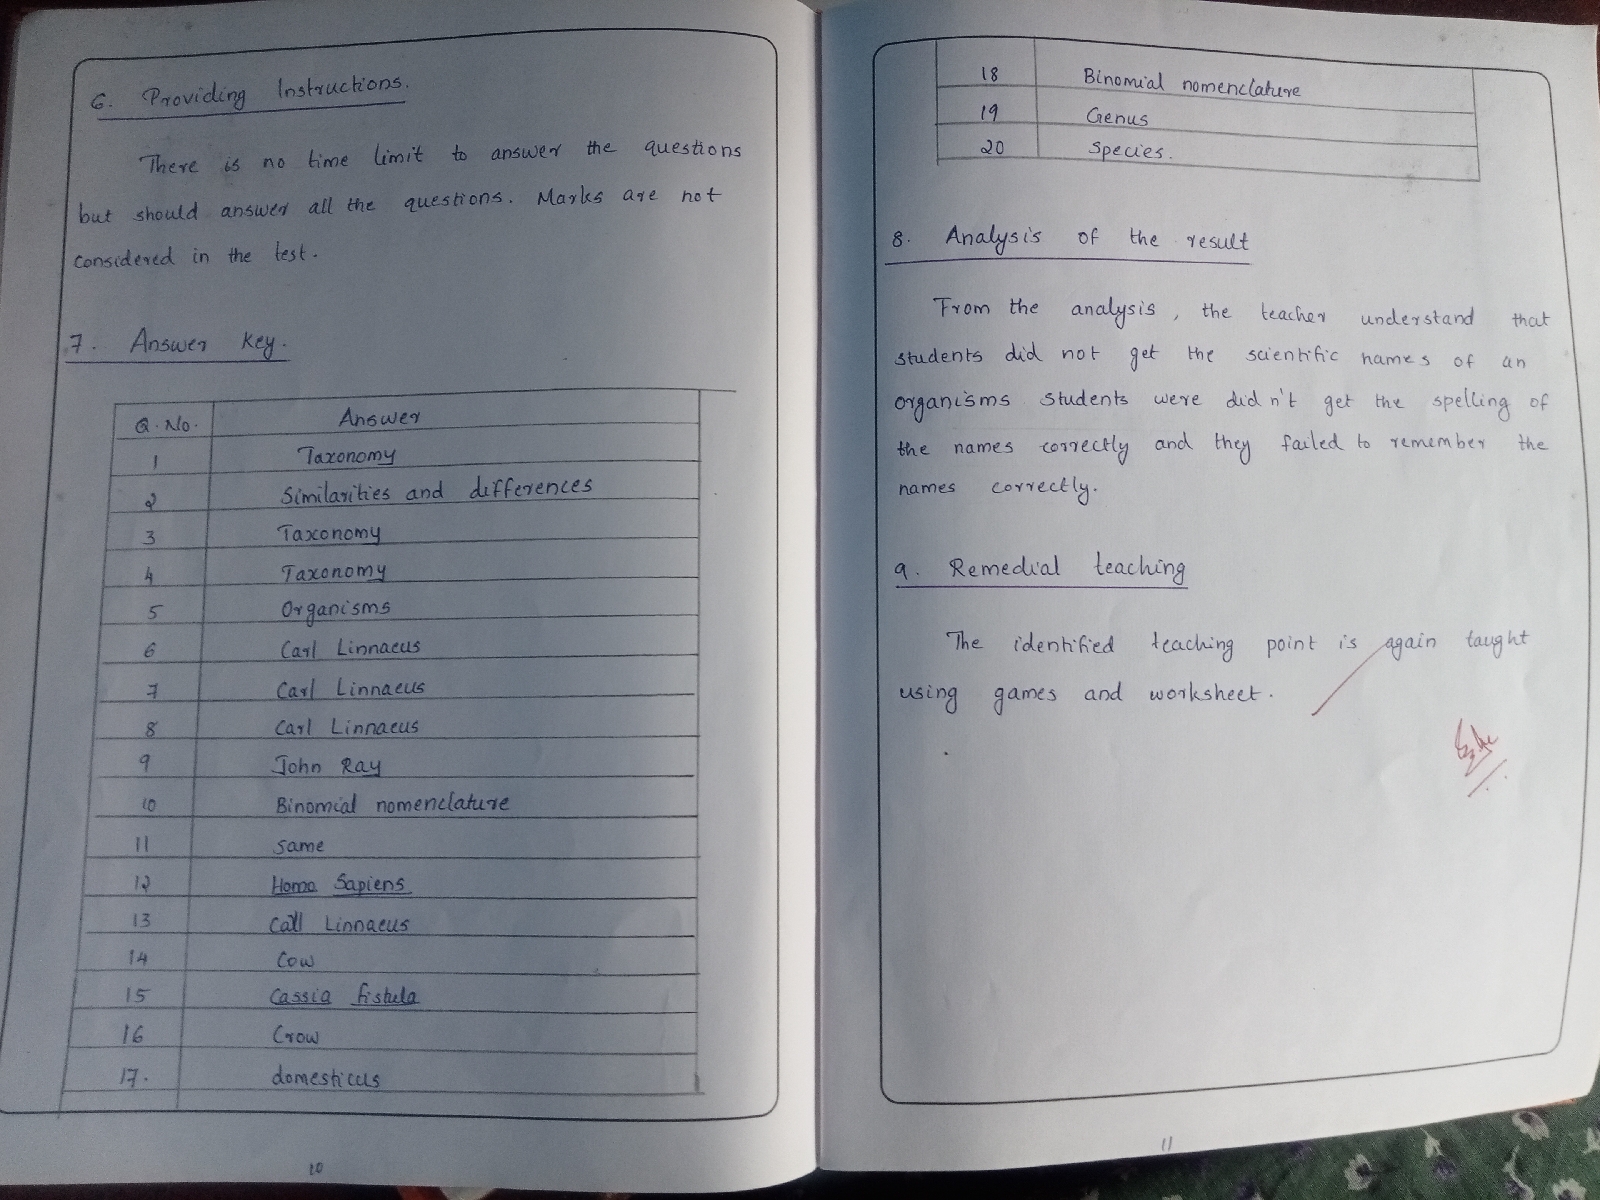 6. Providing Instructions.
There is no time limit to answer the questions
but should answer all the questions. Marks are not
considered in the test.
7. Answer key.
Q.No. Answer
1 Taxonomy
2 Similarities and differences
3 Taxonomy
4 Taxonomy
5 Organisms
6 Carl Linnaeus
7 Carl Linnaeus
8 Carl Linnaeus
9 John Ray
10 Binomial nomenclature
11 same
12 Homo Sapiens
13 Call Linnaeus
14 Cow
15 Cassia fistula
16 Crow
17. domesticus
10
18 Binomial nomenclature
19 Genus
20 Species.
8. Analysis of the result
From the analysis, the teacher understand that
students did not get the scientific names of an
organisms. Students were didn't get the spelling of
the names correctly and they failed to remember the
names correctly.
9. Remedial teaching
The identified teaching point is again taught
using games and worksheet.
11